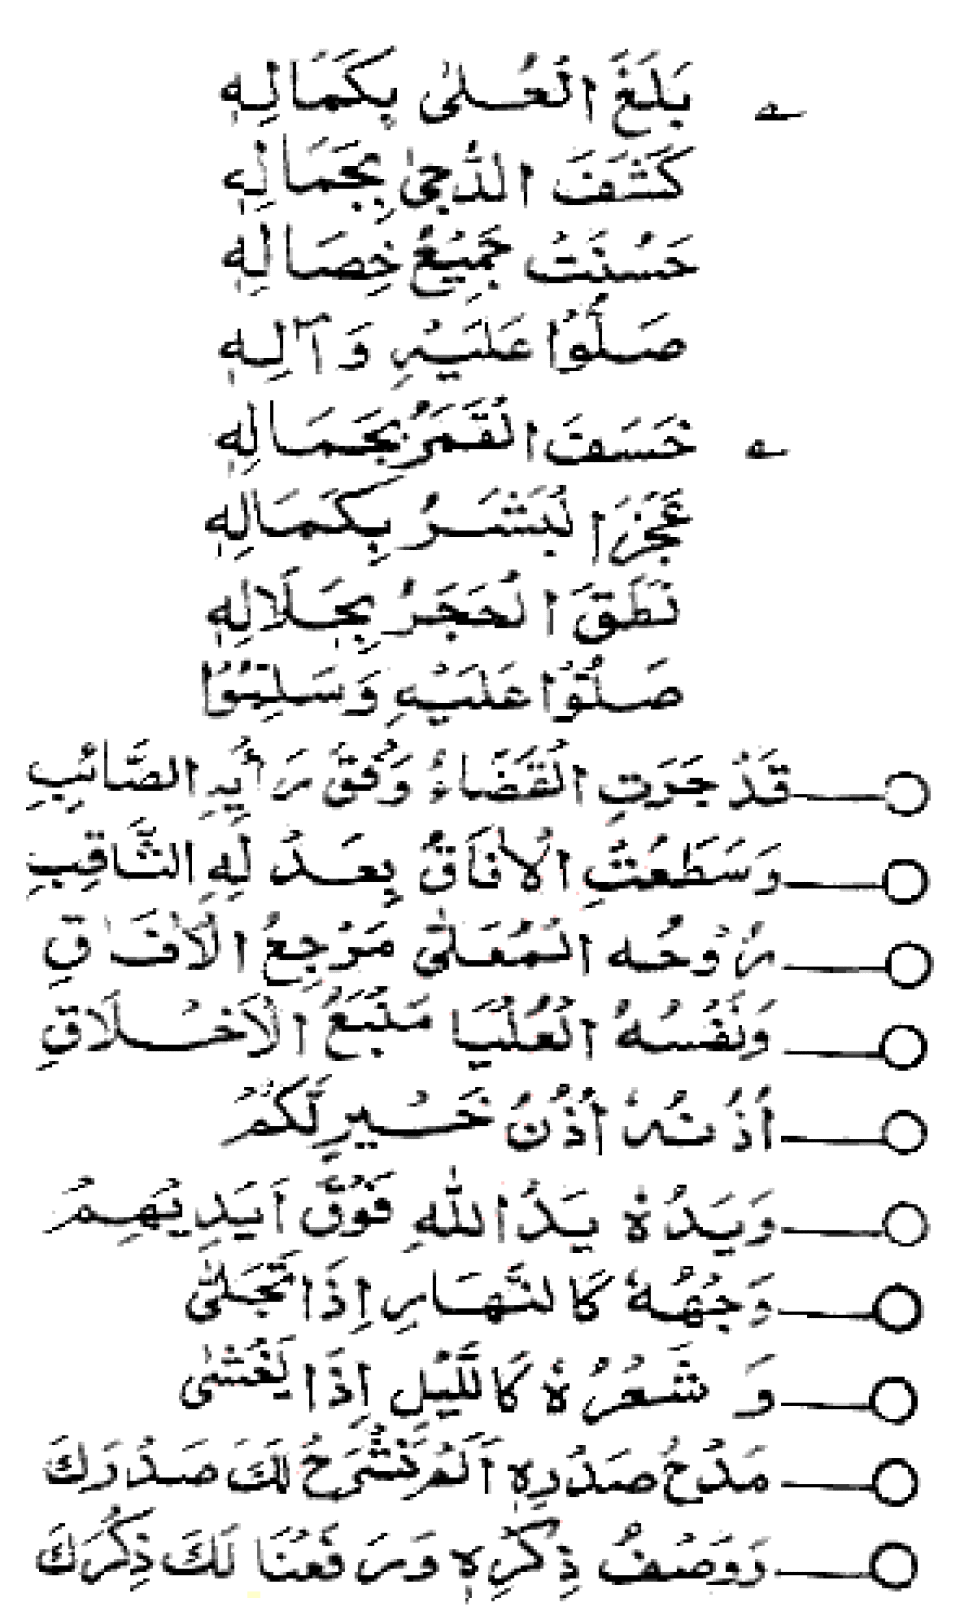 بَلَغَ الْعُلىٰ بِكَمَالِهٖ
كَشَفَ الدُّجىٰ بِجَمَالِهٖ
حَسُنَتْ جَمِيْعُ خِصَالِهٖ
صَلُّوْا عَلَيْهِ وَآلِهٖ
خَسَفَ الْقَمَرُ بِجَمَالِهٖ
عَجَزَ الْبَشَرُ بِكَمَالِهٖ
نَطَقَ الْحَجَرُ بِجَلَالِهٖ
صَلُّوْا عَلَيْهِ وَسَلِّمُوْا
قَدْ جَرَتِ الْقَضَاءُ وَفْقَ رَأْيِهِ الصَّائِبِ
وَسَطَعَتِ الْاٰفَاقُ بِعَدْلِهِ الثَّاقِبِ
رُوْحُه الْمُعَلّٰى مَرْجِعُ الْاٰفَاقِ
وَنَفْسُهُ الْعُلْيَا مَنْبَعُ الْاَخْلَاقِ
اُذُنُهٗ اُذُنُ خَيْرٍ لَّكُمْ
وَيَدُهٗ يَدُ اللهِ فَوْقَ اَيْدِيْهِمْ
وَجْهُهٗ كَالنَّهَارِ اِذَا تَجَلّٰى
وَ شَعْرُهٗ كَالَّيْلِ اِذَا يَغْشٰى
مَدْحُ صَدْرِهٖ اَلَمْ نَشْرَحْ لَكَ صَدْرَكَ
وَوَصْفُ ذِكْرِهٖ وَرَفَعْنَا لَكَ ذِكْرَكَ